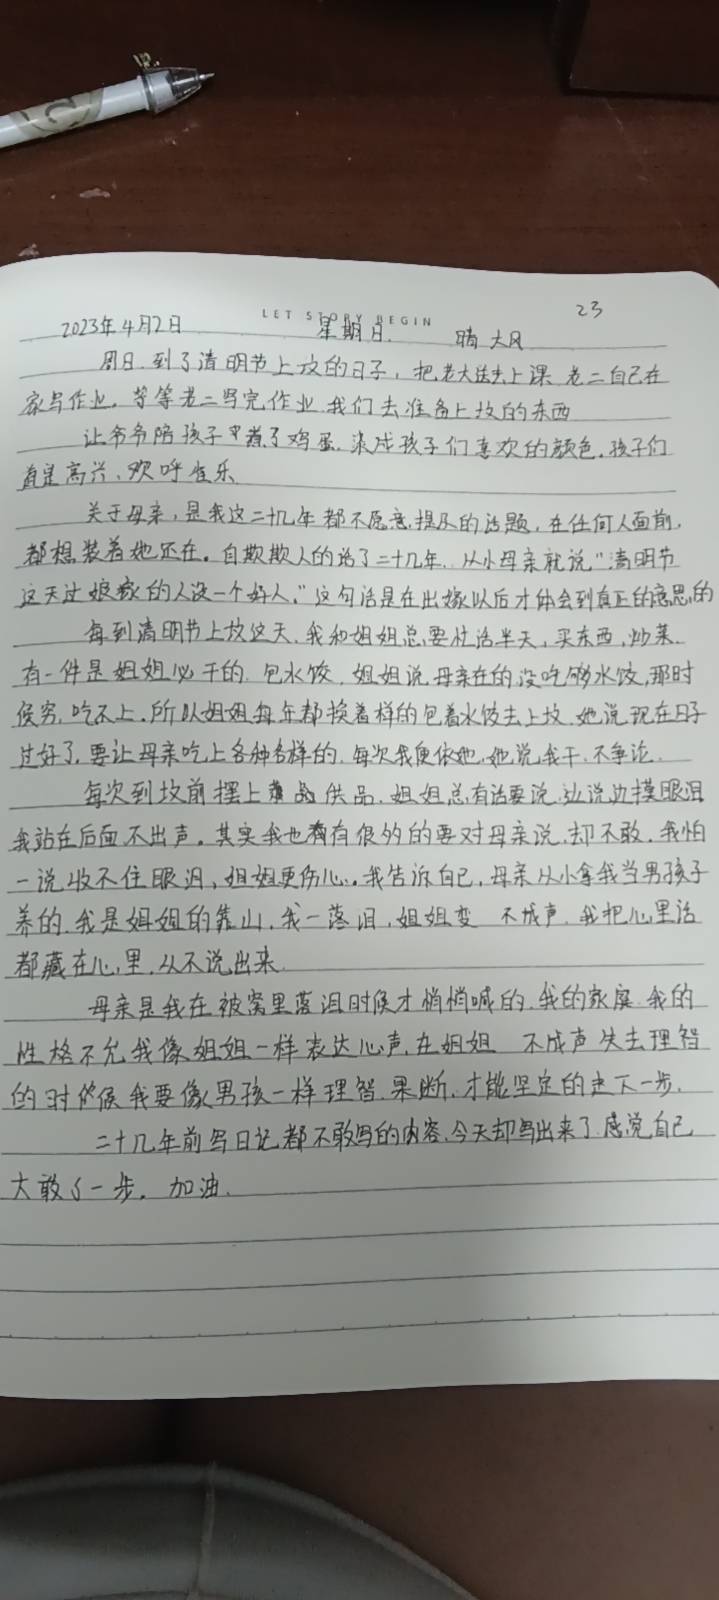 LET STORY BEGIN
23
2023年4月2日 星期日. 晴 大风
周日.到了清明节上坟的日子，把老大送去上课 老二自己在
家写作业。等等老二写完作业.我们去准备上坟的东西
让爷爷陪孩子煮了鸡蛋.染成孩子们喜欢的颜色。孩子们
直是高兴、欢呼雀乐
关于母亲，是我这二十几年都不愿意提及的话题，在任何人面前，
都想装着她还在。自欺欺人的活了二十几年. 从小母亲就说“清明节
这天过娘家的人没一个好人，”这句话是在出嫁以后才体会到真正的意思的
每到清明节上坟这天.我和姐姐总要忙活半天，买东西，炒菜.
有一件是姐姐必干的.包水饺. 姐姐说.母亲在的没吃够水饺,那时
候穷,吃不上.所以姐姐每年都换着样的包着水饺去上坟.她说现在日子
过好了.要让母亲吃上各种各样的.每次我便依她.她说,我干.不争论.
每次到坟前摆上供品.姐姐总有话要说.边说边摸眼泪
我站在后面不出声。其实我也有很多的要对母亲说.却不敢.我怕
一说收不住眼泪、姐姐更伤心。我告诉自已,母亲从小拿我当男孩子
养的.我是姐姐的靠山.我一落泪,姐姐变 不成声.我把心里话
都藏在心里.从不说出来.
母亲是我在被窝里落泪时候才悄悄喊的.我的家庭.我的
性格不允我像姐姐一样表达心声.在姐姐 不成声失去理智
的时候我要像男孩一样理智.果断.才能坚定的走下一步.
二十几年前写日记都不敢写的内容.今天却写出来了.感觉自己
大敢了一步。加油.